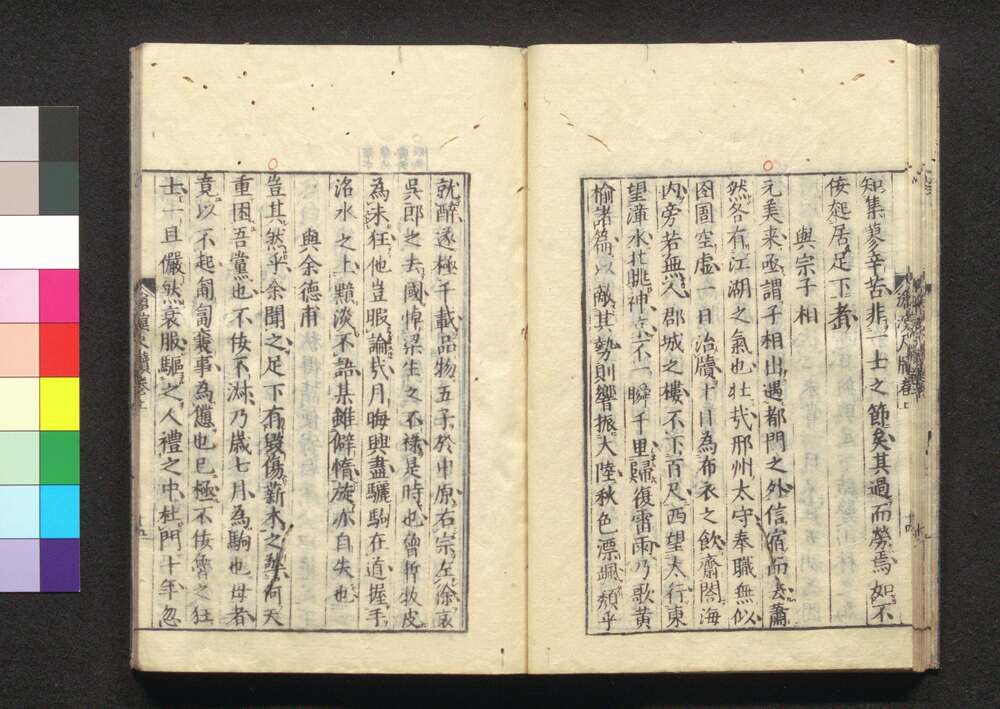 知集蓼辛苦非一士之節矣其過而勞焉如不
佞起居足下者
與宗子相
元美来亟謂子相出遇都門之外信宿而去蕭
然各有江湖之氣也壮哉邢州太守奉職無似
囹圄空虚一日治牘十日為布衣之飲齋閤海
内旁若無人郡城之樓不下百尺西望太行東
望漳水北眺神京不一瞬千里歸復雷雨乃歌黄
榆諸篇以敵其勢則響振大陸秋色漂颯頽乎
就醉遂極千載品物五子於中原右宗左徐哀
吳郎之去國悼梁生之不禄是時也曾暫牧皮
為未狂他豈暇論哉月晦興盡驪駒在道握手
洺水之上黯淡不語某雖僻惰旋亦自失也
與余德甫
豈其然乎余聞之足下有毀傷薪木之
重困吾黨也不佞不淋乃歳七月為駒也母者
竟以不起匍匐襄事為儽也已極不佞魯之狂
士一旦儼然衰服驅之人禮之中杜門十年忽